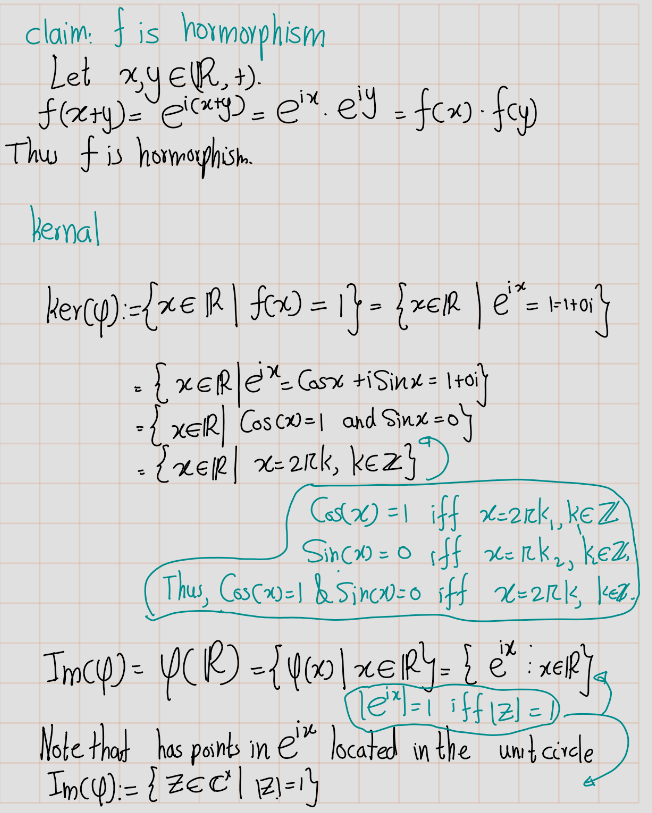 claim: f is hormorphism
Let x,y ∈ (ℝ, +).
f(x+y) = e^{i(x+y)} = e^{ix} . e^{iy} = f(x) · f(y)
Thus f is hormorphism.
kernal
ker(φ) := {x ∈ ℝ | f(x) = 1} = {x∈ℝ | e^{ix} = 1 = 1+0i}
= {x∈ℝ | e^{ix} = Cosx + iSinx = 1+0i}
= {x∈ℝ | Cos(x)=1 and Sinx=0}
= {x∈ℝ | x=2πk, k∈ℤ}
Cos(x) = 1 iff x=2πk₁, k∈ℤ
Sin(x) = 0 iff x=πk₂, k∈ℤ
Thus, Cos(x)=1 & Sin(x)=0 iff x=2πk, k∈ℤ.
Im(φ) = φ(ℝ) = {φ(x) | x∈ℝ} = {e^{ix} : x∈ℝ}
|e^{ix}|=1 iff |z|=1
Note that has points in e^{ix} located in the unit circle
Im(φ) := {z∈ℂ^x | |z|=1}